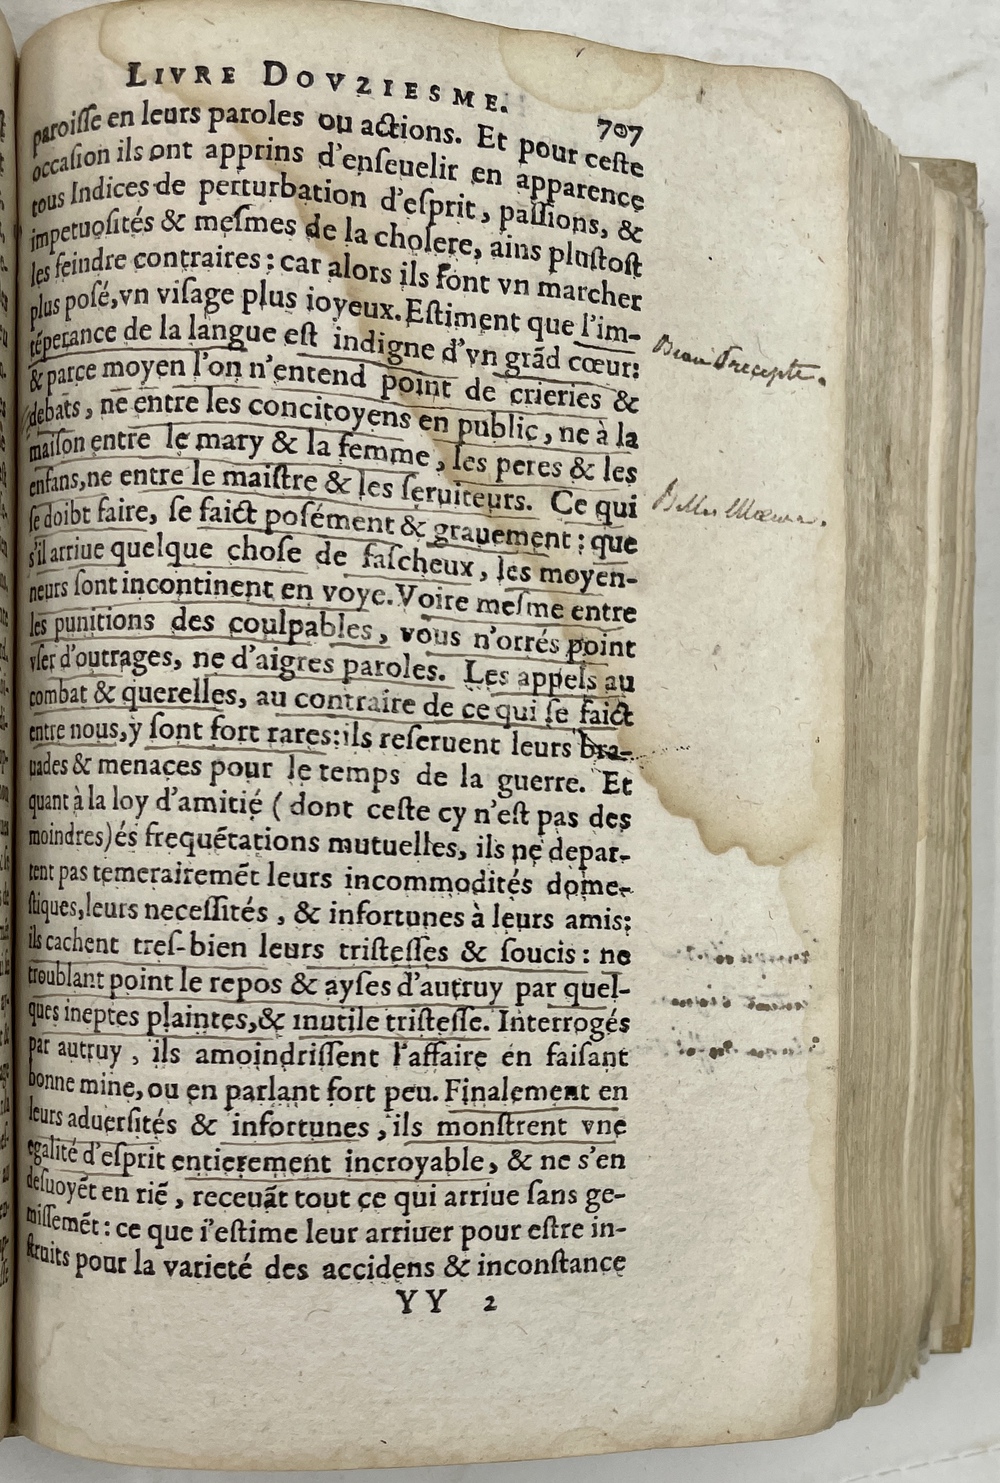 LIVRE DOVZIESME.
707
paroiſſe en leurs paroles ou actions. Et pour ceſte
occaſion ils ont apprins d'enſeuelir en apparence
tous Indices de perturbation d'eſprit, paſſions, &
impetuoſités & meſmes de la cholere, ains pluſtoſt
les feindre contraires : car alors ils ſont vn marcher
plus poſé, vn viſage plus ioyeux. Eſtiment que l'im-
tẽperance de la langue eſt indigne d'vn grãd cœur:
& parce moyen l'on n'entend point de crieries &
debats, ne entre les concitoyens en public, ne à la
maiſon entre le mary & la femme, les peres & les
enfans, ne entre le maiſtre & les ſeruiteurs. Ce qui
ſe doibt faire, ſe faict poſément & grauement : que
s'il arriue quelque choſe de faſcheux, les moyen-
neurs ſont incontinent en voye. Voire meſme entre
les punitions des coulpables, vous n'orrés point
vſer d'outrages, ne d'aigres paroles. Les appels au
combat & querelles, au contraire de ce qui ſe faict
entre nous, y ſont fort rares: ils reſeruent leurs bra-
uades & menaces pour le temps de la guerre. Et
quant à la loy d'amitié ( dont ceſte cy n'eſt pas des
moindres) és frequẽtations mutuelles, ils ne depar-
tent pas temerairemẽt leurs incommodités dome-
ſtiques, leurs neceſſités, & infortunes à leurs amis:
ils cachent treſ-bien leurs triſteſſes & ſoucis : ne
troublant point le repos & ayſes d'autruy par quel-
ques ineptes plaintes, & inutile triſteſſe. Interrogés
par autruy, ils amoindriſſent l'affaire en faiſant
bonne mine, ou en parlant fort peu. Finalement en
leurs aduerſités & infortunes, ils monſtrent vne
egalité d'eſprit entierement incroyable, & ne s'en
deſuoyẽt en riẽ, receuãt tout ce qui arriue ſans ge-
miſſemẽt : ce que i'eſtime leur arriuer pour eſtre in-
ſtruits pour la varieté des accidens & inconſtance
YY 2
Beau Precepte.
Belles Mœurs.